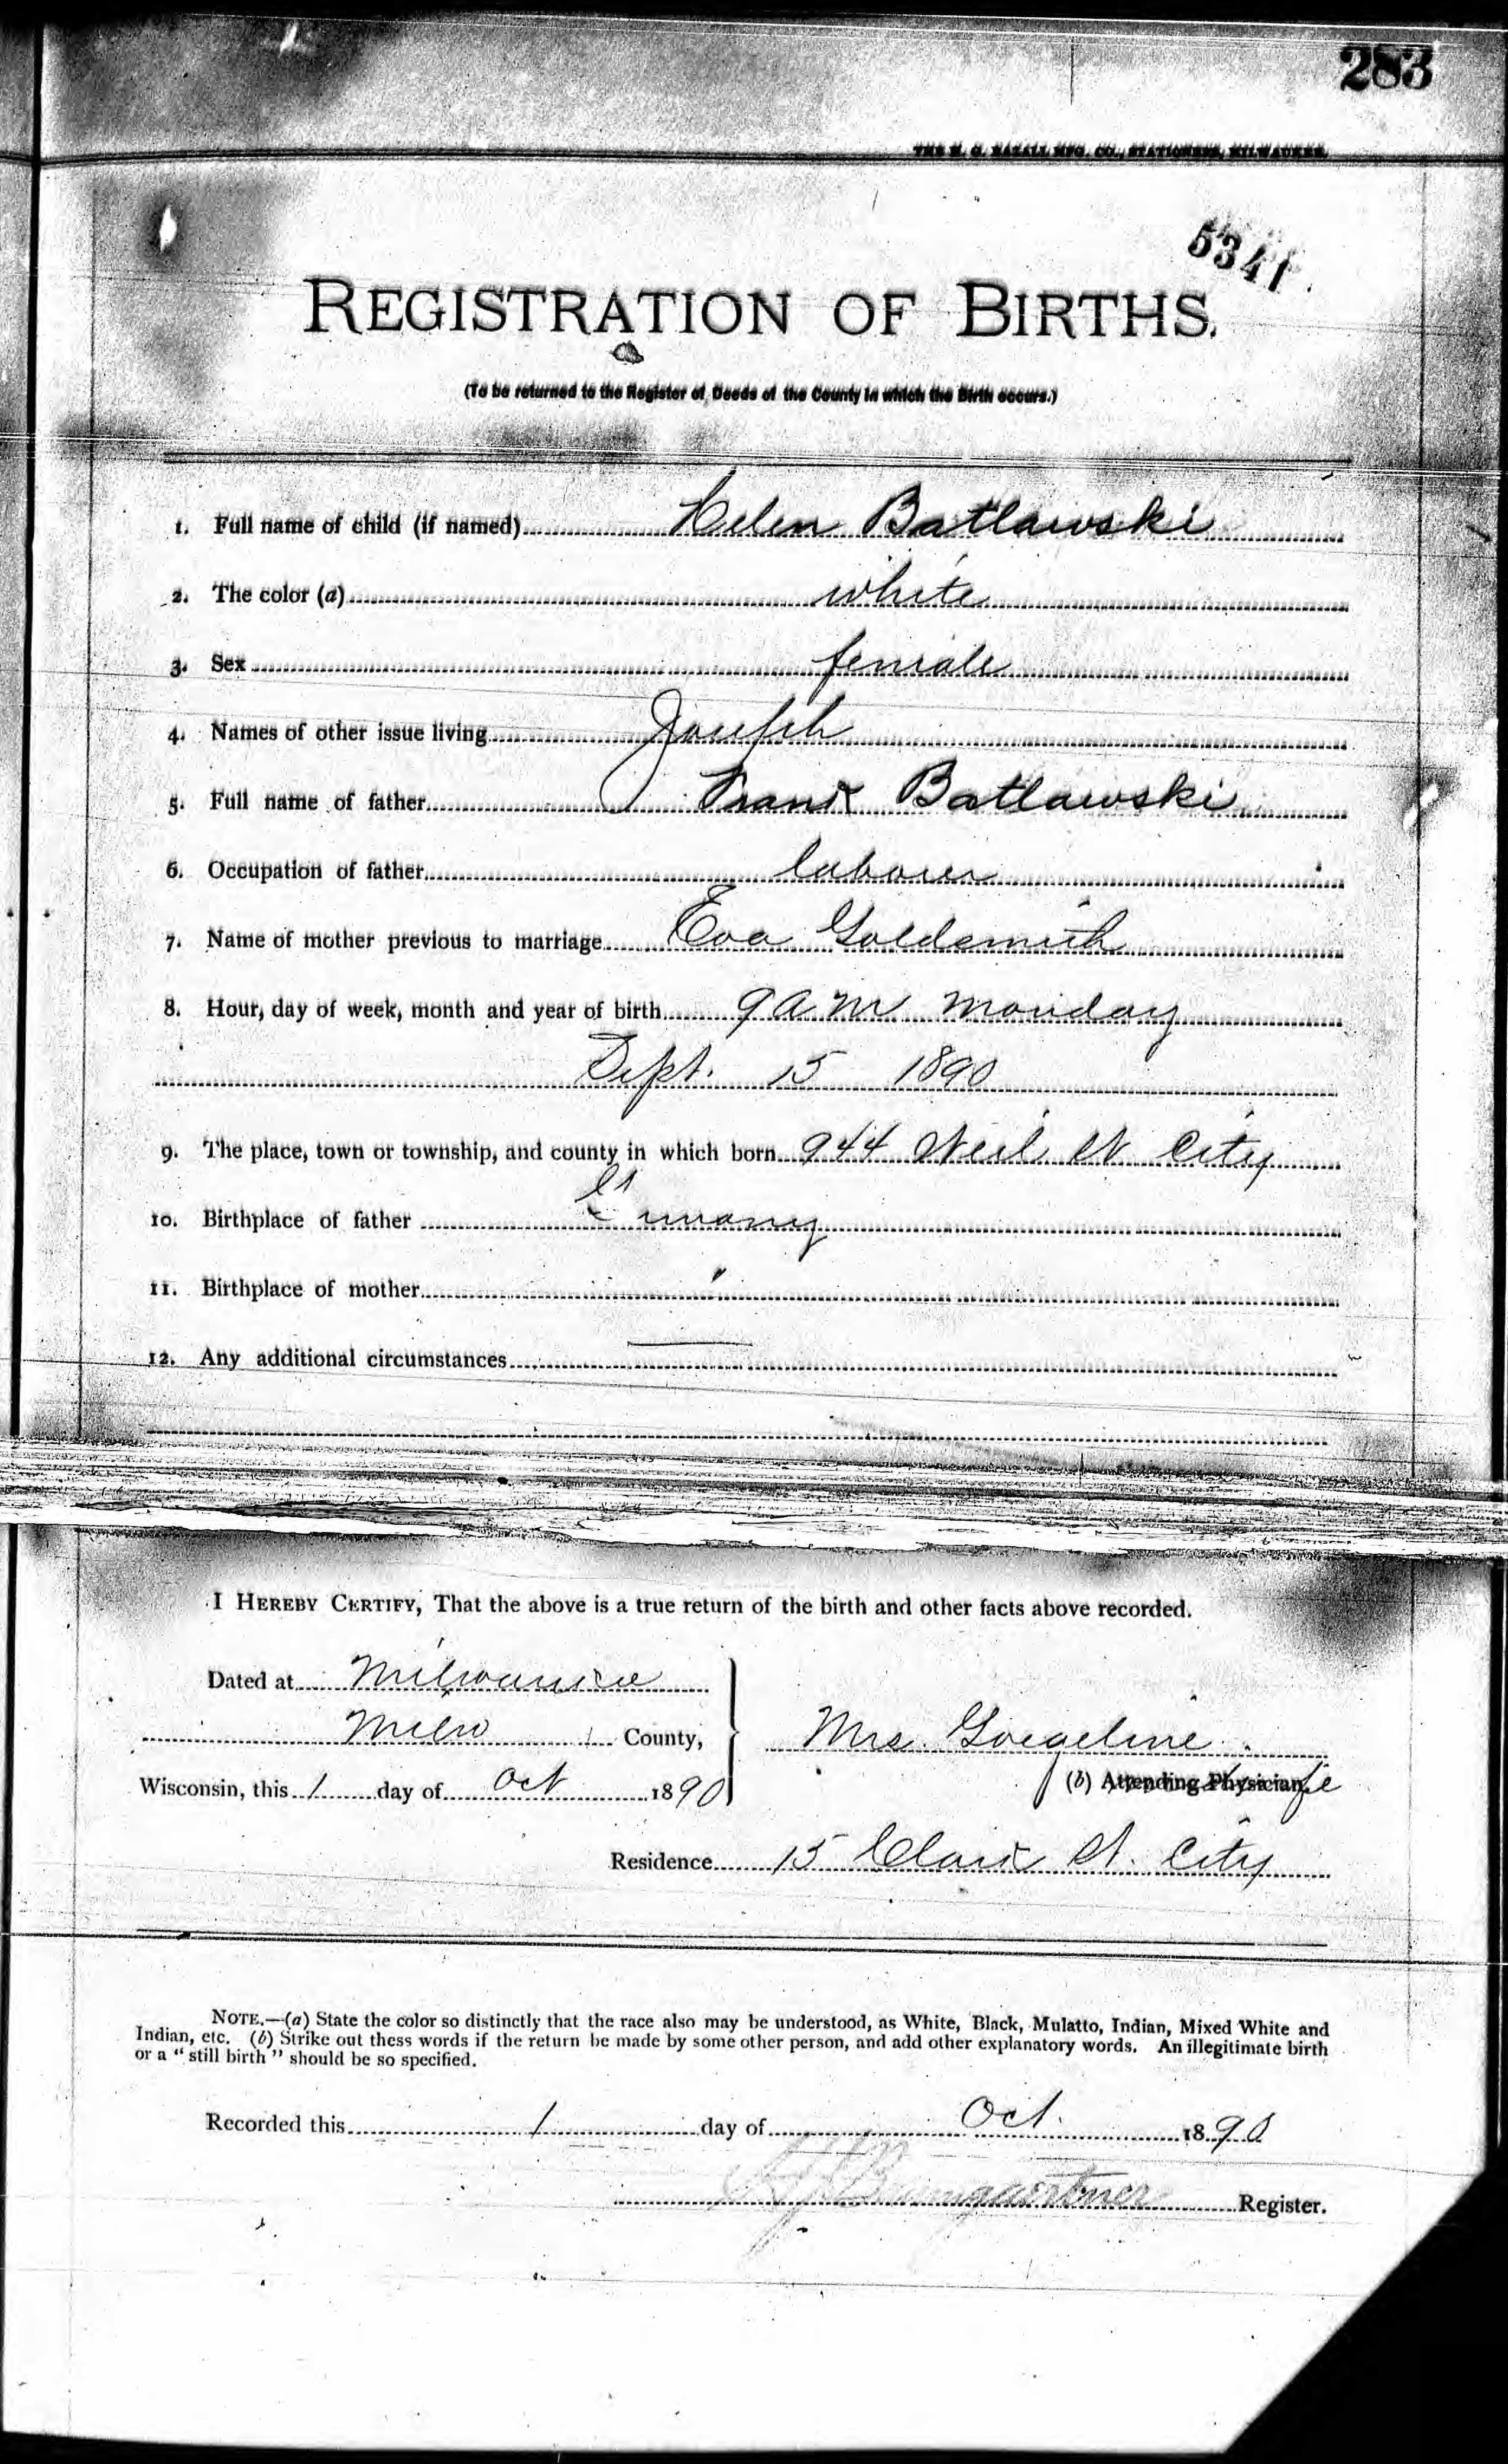 283
THE H. G. RAZALL MFG. CO., STATIONERS, MILWAUKEE.
5341
REGISTRATION OF BIRTHS.
(To be returned to the Register of Deeds of the County in which the Birth occurs.)
1. Full name of child (if named) Helen Batlawski
2. The color (a) white
3. Sex female
4. Names of other issue living Joseph
5. Full name of father Frank Batlawski
6. Occupation of father laborer
7. Name of mother previous to marriage Eva Goldsmith
8. Hour, day of week, month and year of birth 9 a m Monday
Sept. 15 1890
9. The place, town or township, and county in which born 944 St City
10. Birthplace of father Germany
11. Birthplace of mother "
12. Any additional circumstances —
I HEREBY CERTIFY, That the above is a true return of the birth and other facts above recorded.
Dated at Milwaukee
Milw County,
Mrs.
Wisconsin, this 1 day of Oct 1890
(b) Attending Physician.
Residence 15 Clark St. City
NOTE.—(a) State the color so distinctly that the race also may be understood, as White, Black, Mulatto, Indian, Mixed White and
Indian, etc. (b) Strike out thess words if the return be made by some other person, and add other explanatory words. An illegitimate birth
or a "still birth" should be so specified.
Recorded this 1 day of Oct. 1890
Baumgaertner Register.